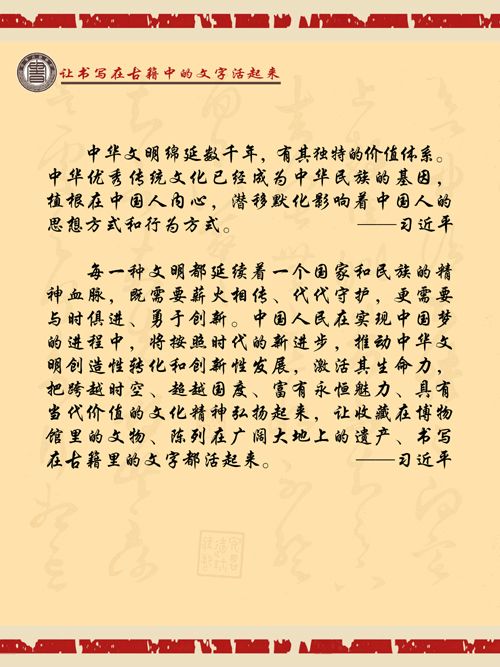 让书写在古籍中的文字活起来
中华文明绵延数千年，有其独特的价值体系。
中华优秀传统文化已经成为中华民族的基因，
植根在中国人内心，潜移默化影响着中国人的
思想方式和行为方式。 ——习近平
每一种文明都延续着一个国家和民族的精
神血脉，既需要薪火相传、代代守护，更需要
与时俱进、勇于创新。中国人民在实现中国梦
的进程中，将按照时代的新进步，推动中华文
明创造性转化和创新性发展，激活其生命力，
把跨越时空、超越国度、富有永恒魅力、具有
当代价值的文化精神弘扬起来，让收藏在博物
馆里的文物、陈列在广阔大地上的遗产、书写
在古籍里的文字都活起来。 ——习近平